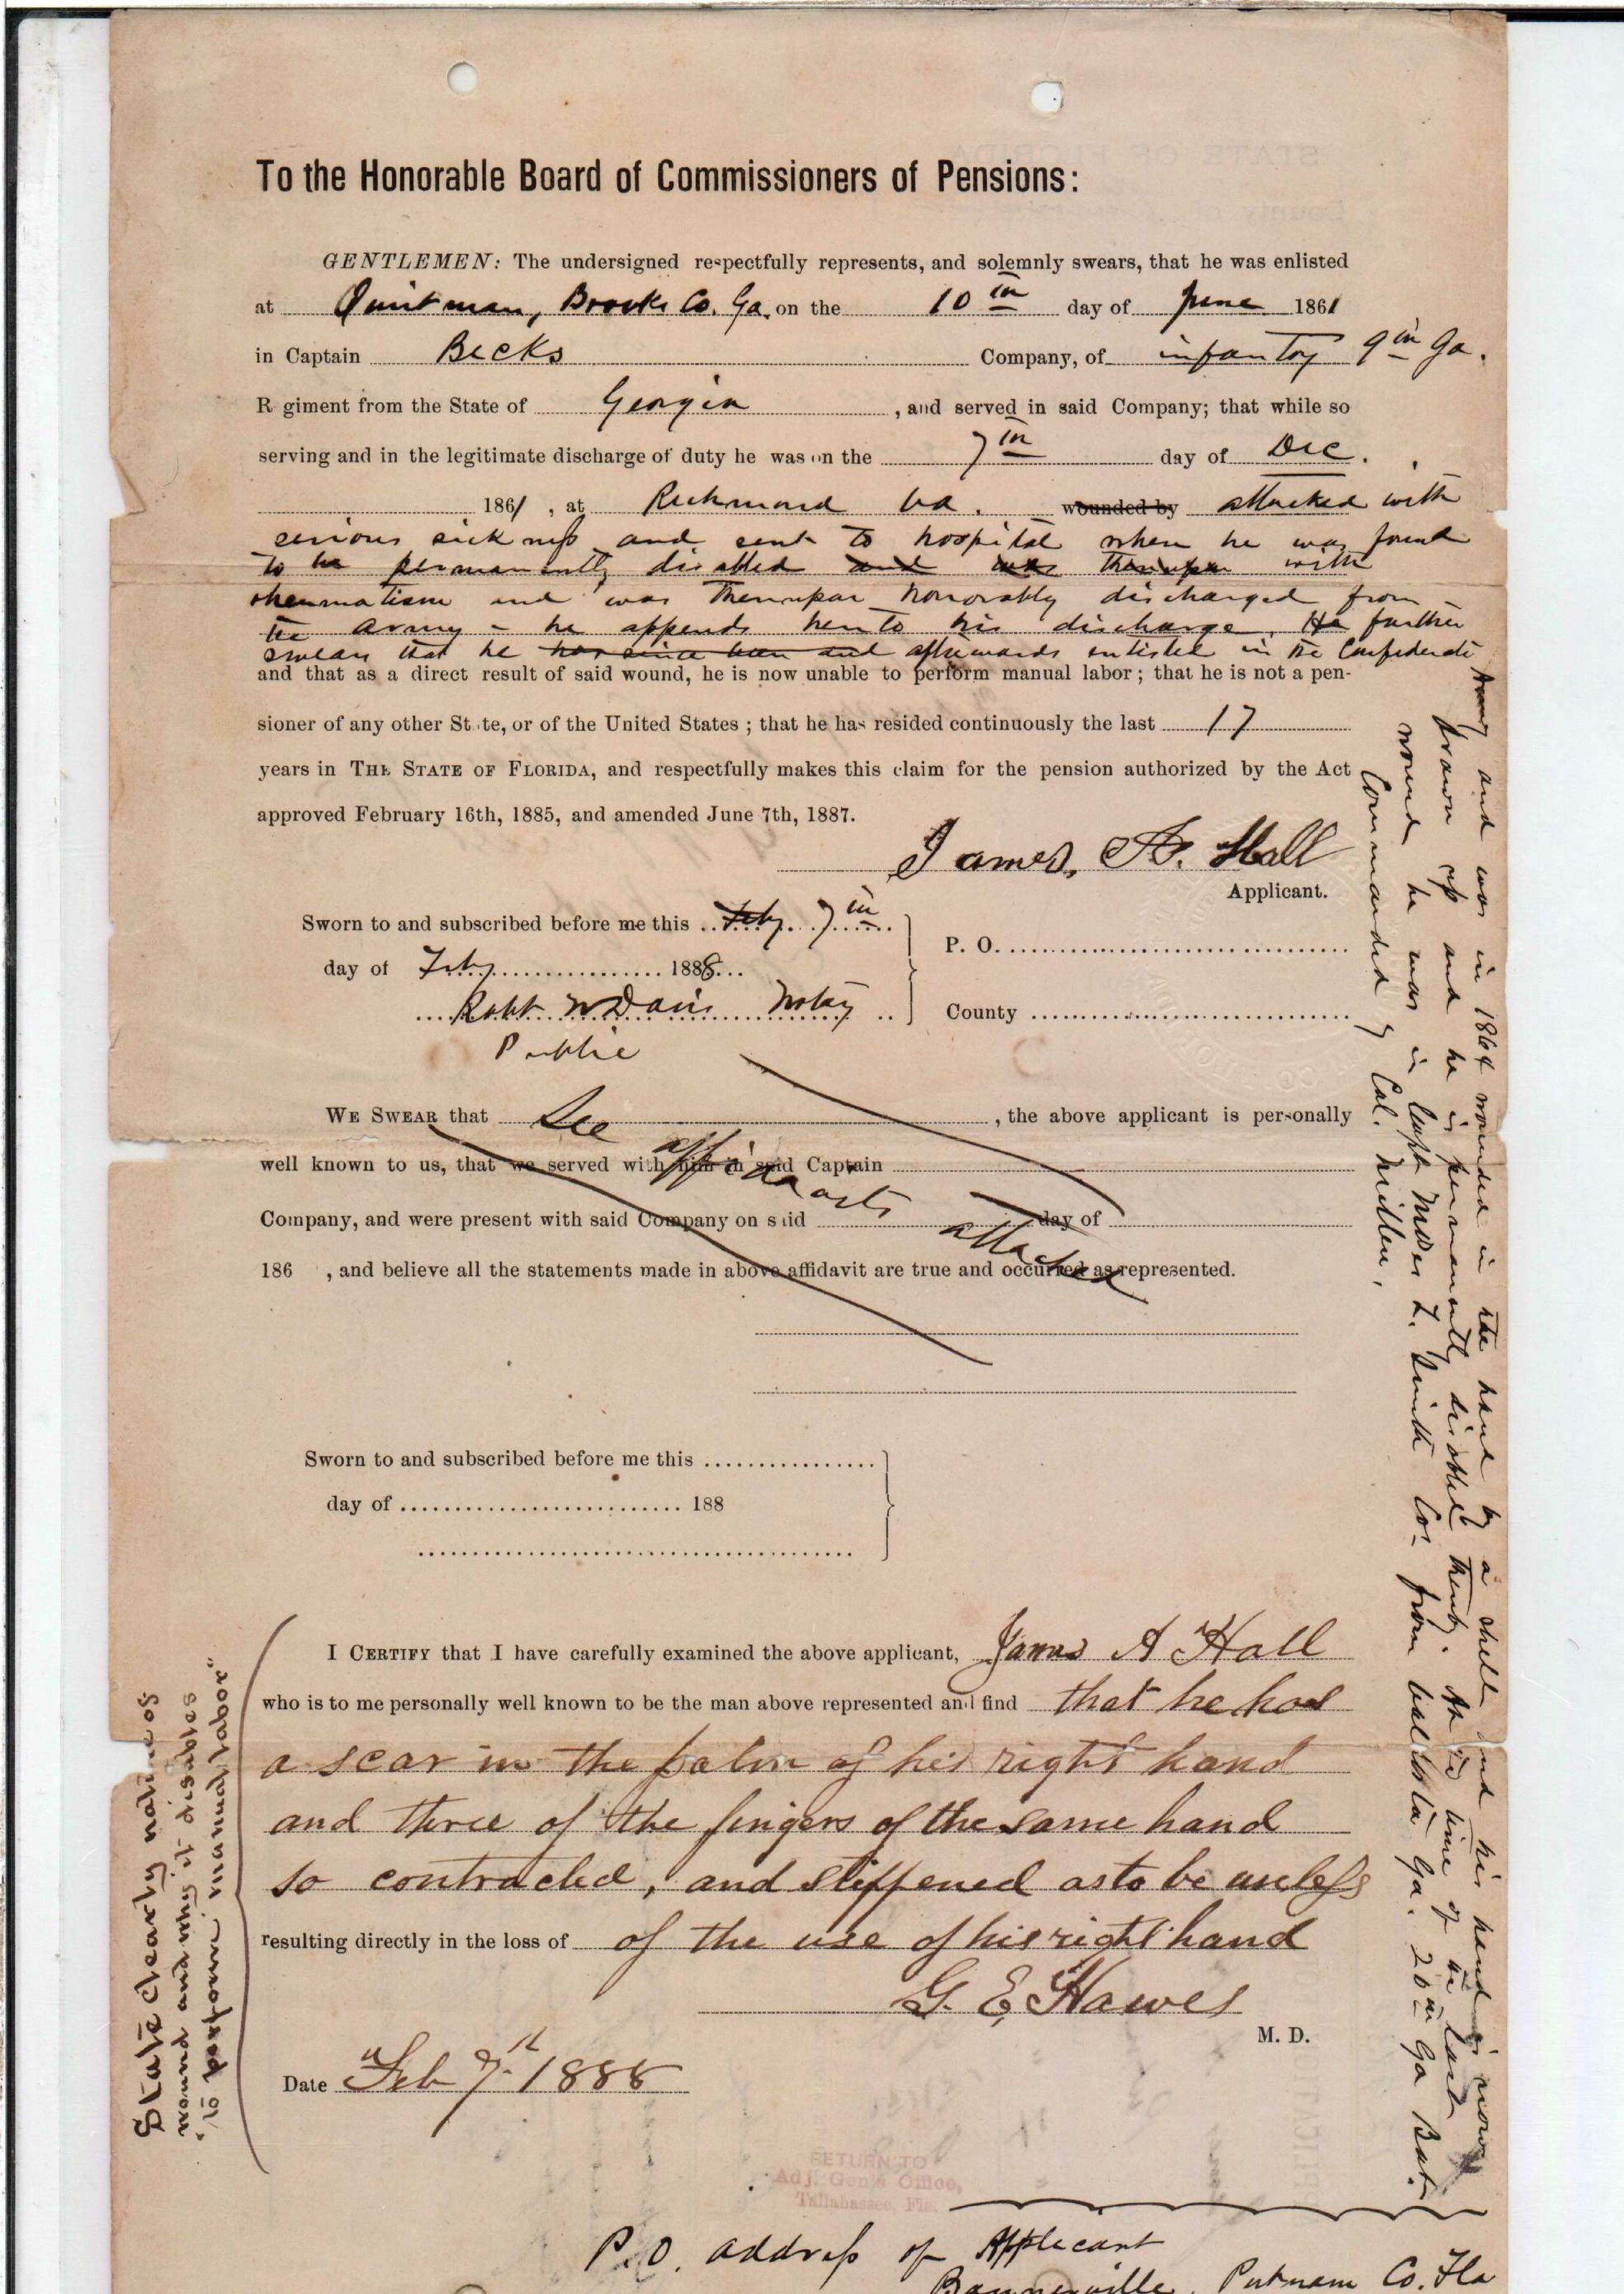 To the Honorable Board of Commissioners of Pensions:
GENTLEMEN: The undersigned respectfully represents, and solemnly swears, that he was enlisted
at Quitman, Brooks Co. Ga. on the 10th day of June 1861
in Captain Becks Company, of infantry 9th Ga.
R giment from the State of Georgia, and served in said Company; that while so
serving and in the legitimate discharge of duty he was on the 7th day of Dec.
1861, at Richmond Va. wounded by attacked with
serious sickness and sent to hospital when he was found
to be permanently disabled and was thereupon with
rheumatism and was thereupon honorably discharged from
the army - he appends hereto his discharge. He further
swears that he has since been and afterwards enlisted in the Confederate
and that as a direct result of said wound, he is now unable to perform manual labor; that he is not a pen-
sioner of any other State, or of the United States; that he has resided continuously the last 17
years in THE STATE OF FLORIDA, and respectfully makes this claim for the pension authorized by the Act
approved February 16th, 1885, and amended June 7th, 1887.
James, A. Hall
Applicant.
Sworn to and subscribed before me this Feby. 7th
day of Feby 1888
Robt W Davis Notary
Public
P. O.
County
Army and was in 1864 wounded in the hand by a shell and his hand is now
drawn up and he is permanently disabled thereby. At the time of the last
wound he was in Capt Moses L. Smith Co- from Valdosta Ga. 20th Ga Bat.
Commanded by Col. Millen,
WE SWEAR that See, the above applicant is personally
well known to us, that we served with him in said Captain
affidavits attached
Company, and were present with said Company on said day of
186 , and believe all the statements made in above affidavit are true and occurred as represented.
Sworn to and subscribed before me this
day of 188
State clearly nature of
wound and why it disables
"to perform manual labor"
I CERTIFY that I have carefully examined the above applicant, James A Hall
who is to me personally well known to be the man above represented and find that he has
a scar in the palm of his right hand
and three of the fingers of the same hand
so contracted, and stiffened as to be useless
resulting directly in the loss of of the use of his right hand
G. E. Hawes
M. D.
Date Feb 7th 1888
RETURN TO
Adj. Gen's Office,
Tallahassee, Fla.
P.O. address of Applicant
Bannerville, Putnam Co. Fla